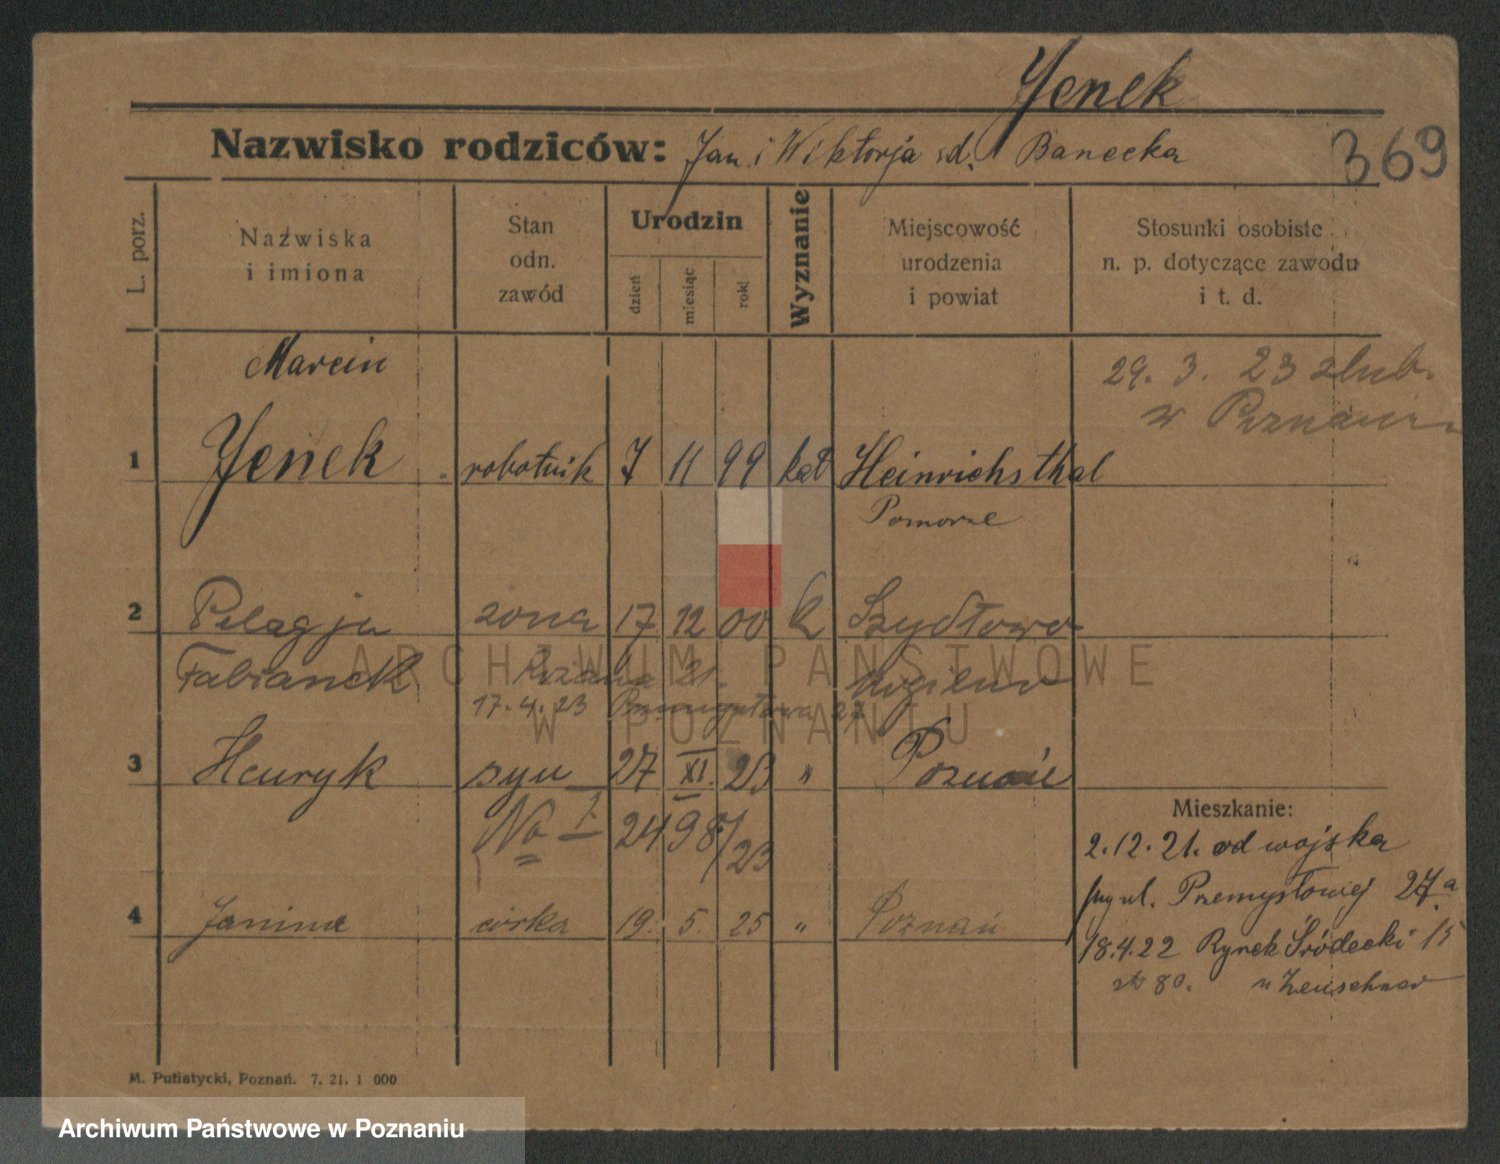 Yenek
Nazwisko rodziców: Jan i Wiktorja sd. Banecka
369
L. porz.
Nazwiska i imiona
Stan odn. zawód
Urodzin
dzień
miesiąc
rok
Wyznanie
Miejscowość urodzenia i powiat
Stosunki osobiste n. p. dotyczące zawodu i t. d.
Marcin
29. 3. 23 ślub.
w Poznaniu
1 Yenek robotnik 7 11 99 kat Heinrichsthal
Pomorze
2 Pelagja żona 17 12 00 k Szydłowo
Fabianek
17.4.23 Przemysłowa 27
3 Henryk syn 27 XI. 23 " Poznań
No I. 2498/23
Mieszkanie:
2.12.21. od wojska
ul. Przemysłowej 27a
4 Janina córka 19. 5. 25 " Poznań
18.4.22 Rynek Śródecki 15
80.
M. Putiatycki, Poznań. 7. 21. 1 000
ARCHIWUM PAŃSTWOWE
W POZNANIU
Archiwum Państwowe w Poznaniu